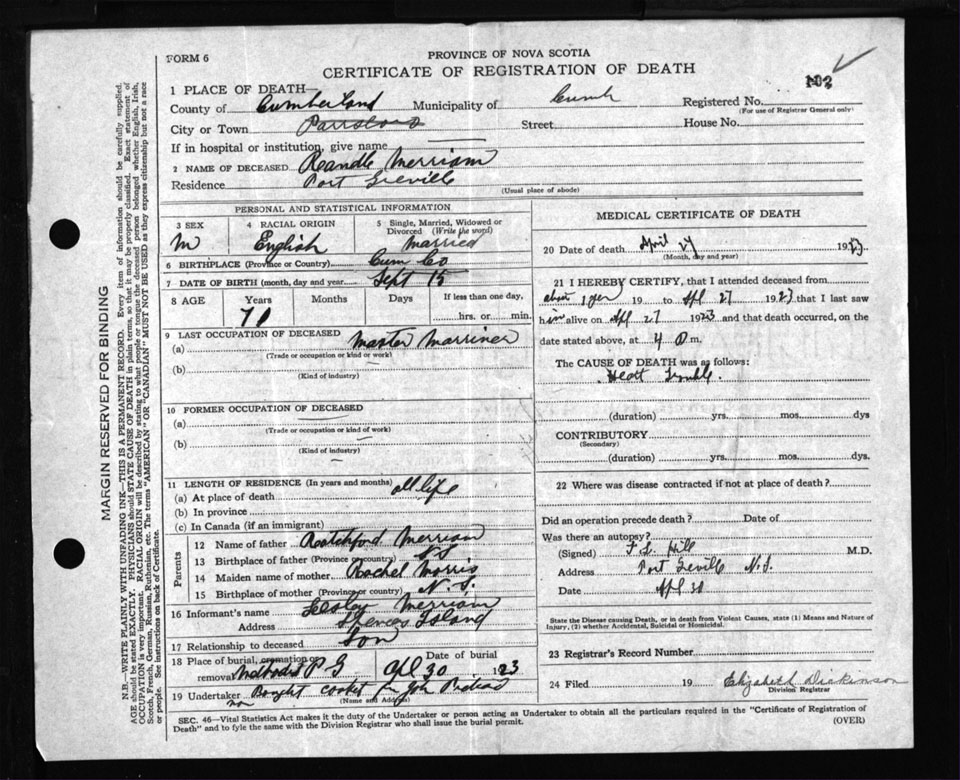 FORM 6
PROVINCE OF NOVA SCOTIA
CERTIFICATE OF REGISTRATION OF DEATH
102
1 PLACE OF DEATH—
County of Cumberland Municipality of Cumb Registered No.
(For use of Registrar General only)
City or Town Parrsboro Street House No.
If in hospital or institution, give name
2 NAME OF DECEASED Reandle Merriam
Residence Port Greville
(Usual place of abode)
PERSONAL AND STATISTICAL INFORMATION
3 SEX M
4 RACIAL ORIGIN English
5 Single, Married, Widowed or Divorced (Write the word) Married
6 BIRTHPLACE (Province or Country) Cum Co
7 DATE OF BIRTH (month, day and year) Sept 15
8 AGE Years Months Days If less than one day,
71 hrs. or min.
9 LAST OCCUPATION OF DECEASED
(a) Master Marriner
(Trade or occupation or kind or work)
(b)
(Kind of industry)
10 FORMER OCCUPATION OF DECEASED
(a)
(Trade or occupation or kind of work)
(b)
(Kind of industry)
11 LENGTH OF RESIDENCE (In years and months)
(a) At place of death all life
(b) In province
(c) In Canada (if an immigrant)
Parents
12 Name of father Ratchford Merriam
13 Birthplace of father (Province or country) N S
14 Maiden name of mother Rachel Morris
15 Birthplace of mother (Province or country) N. S.
16 Informant's name Lesley Merriam
Address Spencers Island
17 Relationship to deceased Son
18 Place of burial, cremation or removal Methodist P G Date of burial Apl 30 1923
19 Undertaker Bought casket from John
no
(Name and Address)
MEDICAL CERTIFICATE OF DEATH
20 Date of death April 27 1923
(Month, day and year)
21 I HEREBY CERTIFY, that I attended deceased from
about 1 yer 19 to Apl 27 1923 that I last saw
him alive on Apl 27 1923 and that death occurred, on the
date stated above, at 4 P m.
The CAUSE OF DEATH was as follows:
Heart Trouble.
(duration) yrs. mos. dys
CONTRIBUTORY
(Secondary)
(duration) yrs. mos. dys.
22 Where was disease contracted if not at place of death?
Did an operation precede death? Date of
Was there an autopsy?
(Signed) F L Hill M.D.
Address Port Greville N.S.
Date Apl 30
State the Disease causing Death, or in death from Violent Causes, state (1) Means and Nature of Injury, (2) whether Accidental, Suicidal or Homicidal.
23 Registrar's Record Number
24 Filed 19 Elizabeth Dickinson
Division Registrar
SEC. 46—Vital Statistics Act makes it the duty of the Undertaker or person acting as Undertaker to obtain all the particulars required in the "Certificate of Registration of
Death" and to fyle the same with the Division Registrar who shall issue the burial permit. (OVER)
MARGIN RESERVED FOR BINDING
N.B.—WRITE PLAINLY WITH UNFADING INK—THIS IS A PERMANENT RECORD. Every item of information should be carefully supplied.
AGE should be stated EXACTLY. PHYSICIANS should STATE CAUSE OF DEATH in plain terms, so that it may be properly classified. Exact statement of
OCCUPATION is very important. RACIAL ORIGIN will be described by stating to what people or tongue the deceased person belonged whether English, Irish,
Scotch, French, German, Russian, Ruthenian, etc. The terms "AMERICAN" OR "CANADIAN" MUST NOT BE USED as they express citizenship but not a race
or people. See instructions on back of Certificate.